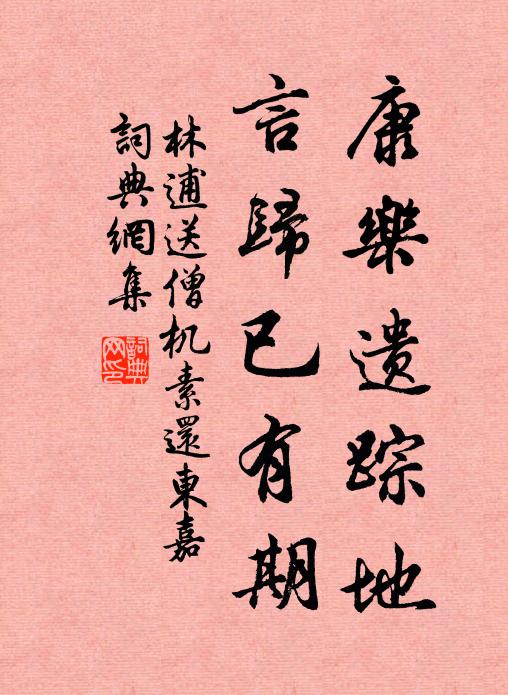 康樂遺踪地
言歸已有期
林逋送僧机素還東嘉
詞典網集
詞典
网印